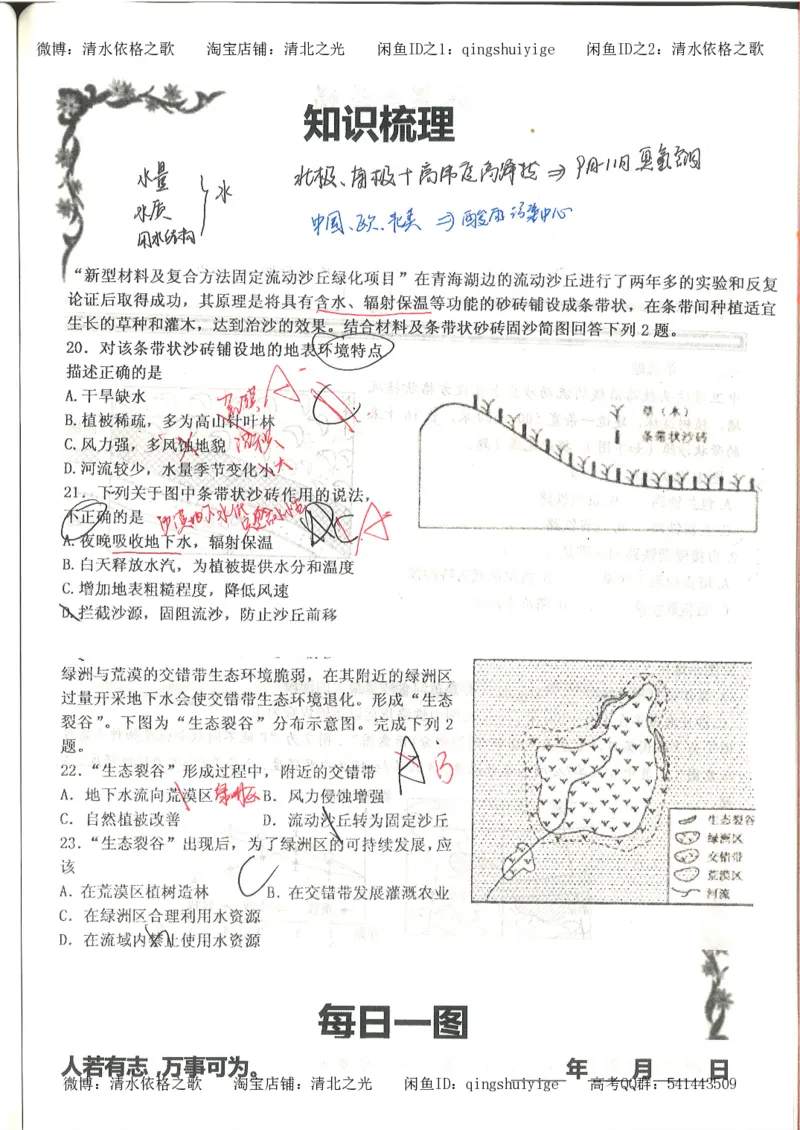 微博：清水依格之歌 淘宝店铺：清北之光 闲鱼ID之1：qingshuiyige 闲鱼ID之2：清水依格之歌
知识梳理
水量
水质
用水结构
水
北极、南极+高纬度高海拔⇒9月-11月臭氧空洞
中国、欧、北美⇒酸雨污染中心
“新型材料及复合方法固定流动沙丘绿化项目”在青海湖边的流动沙丘进行了两年多的实验和反复
论证后取得成功，其原理是将具有含水、辐射保温等功能的砂砖铺设成条带状，在条带间种植适宜
生长的草种和灌木，达到治沙的效果。结合材料及条带状砂砖固沙简图回答下列 2 题。
20．对该条带状沙砖铺设地的地表环境特点
描述正确的是
A.干旱缺水
B.植被稀疏，多为高山针叶林
C.风力强，多风蚀地貌
D.河流较少，水量季节变化小 大
草（木）
条带状沙砖
21．下列关于图中条带状沙砖作用的说法，
不正确的是
A.夜晚吸收地下水，辐射保温
B.白天释放水汽，为植被提供水分和温度
C.增加地表粗糙程度，降低风速
D.拦截沙源，固阻流沙，防止沙丘前移
绿洲与荒漠的交错带生态环境脆弱，在其附近的绿洲区
过量开采地下水会使交错带生态环境退化。形成“生态
裂谷”。下图为“生态裂谷”分布示意图。完成下列 2
题。
22．“生态裂谷”形成过程中，附近的交错带
A B
A．地下水流向荒漠区 B．风力侵蚀增强
C．自然植被改善 D．流动沙丘转为固定沙丘
23．“生态裂谷”出现后，为了绿洲区的可持续发展，应
该
C
A．在荒漠区植树造林 B．在交错带发展灌溉农业
C．在绿洲区合理利用水资源
D．在流域内禁止使用水资源
生态裂谷
绿洲区
交错带
荒漠区
河流
每日一图
人若有志，万事可为。 ____年____月____日
微博：清水依格之歌 淘宝店铺：清北之光 闲鱼ID：qingshuiyige 高考QQ群：541443509